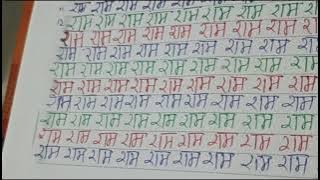 राम राम राम राम राम राम राम राम राम
राम राम राम राम राम राम राम राम रा
राम राम राम राम राम राम राम राम रा
राम राम राम राम राम राम राम राम राम
राम राम राम राम राम राम राम राम राम
राम राम राम राम राम राम राम राम राम
राम राम राम राम राम राम राम राम राम
राम राम राम राम राम राम राम राम राम
राम राम राम राम राम राम राम राम राम
राम राम राम राम राम राम राम राम राम